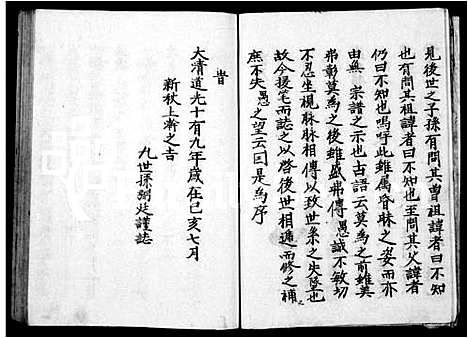 見後世之子孫有問其曾祖諱者曰不知
也有問其祖諱者曰不知也至問其父諱者
仍曰不知也嗚呼此雖属昏昧之姿而亦
由無 宗譜之示也古語云莫為之前雖美
弗彰莫為之後雖盛弗傳 愚誠不敏切
不忍坐視脉脉相傳以致世系之失墬也
故今援笔而誌之以啓後世相逓而修之補之
庶不失愚之望云曰是為序
旹
大清道光十有九年歲在己亥七月
新秋上澣之吉
九世孫 廷謹誌